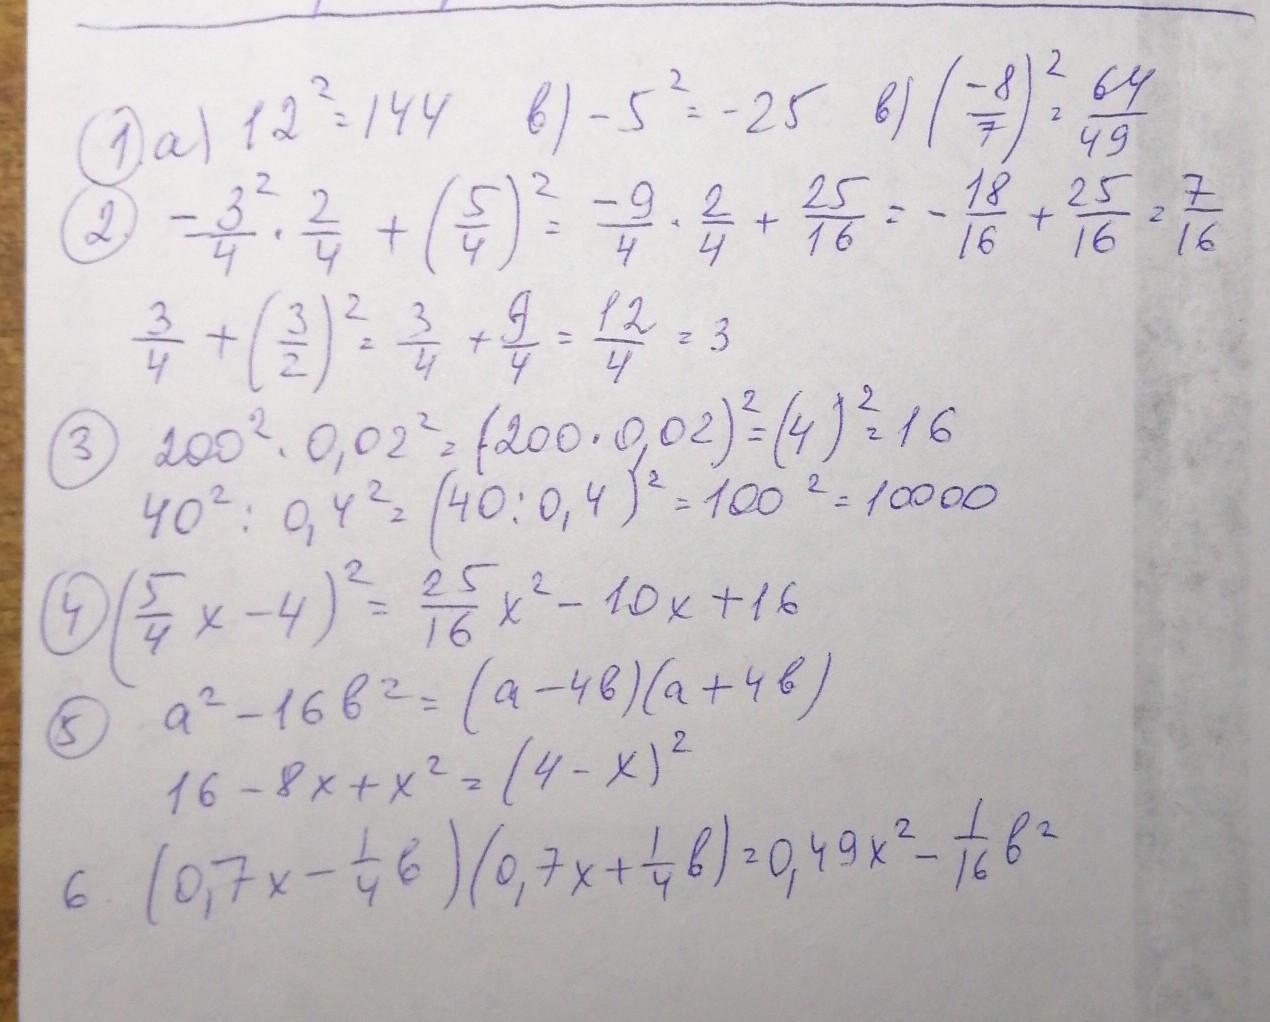 1. а) 12² = 144 в) -5² = -25 в) (-8/7)² = 64/49
2 -3²/4 · 2/4 + (5/4)² = -9/4 · 2/4 + 25/16 = -18/16 + 25/16 = 7/16
3/4 + (3/2)² = 3/4 + 9/4 = 12/4 = 3
3 200² · 0,02² = (200 · 0,02)² = (4)² = 16
40² : 0,4² = (40 : 0,4)² = 100² = 10000
4 (5/4 x - 4)² = 25/16 x² - 10x + 16
5 a² - 16в² = (a - 4в)(a + 4в)
16 - 8x + x² = (4 - x)²
6. (0,7x - 1/4 в)(0,7x + 1/4 в) = 0,49x² - 1/16 в²